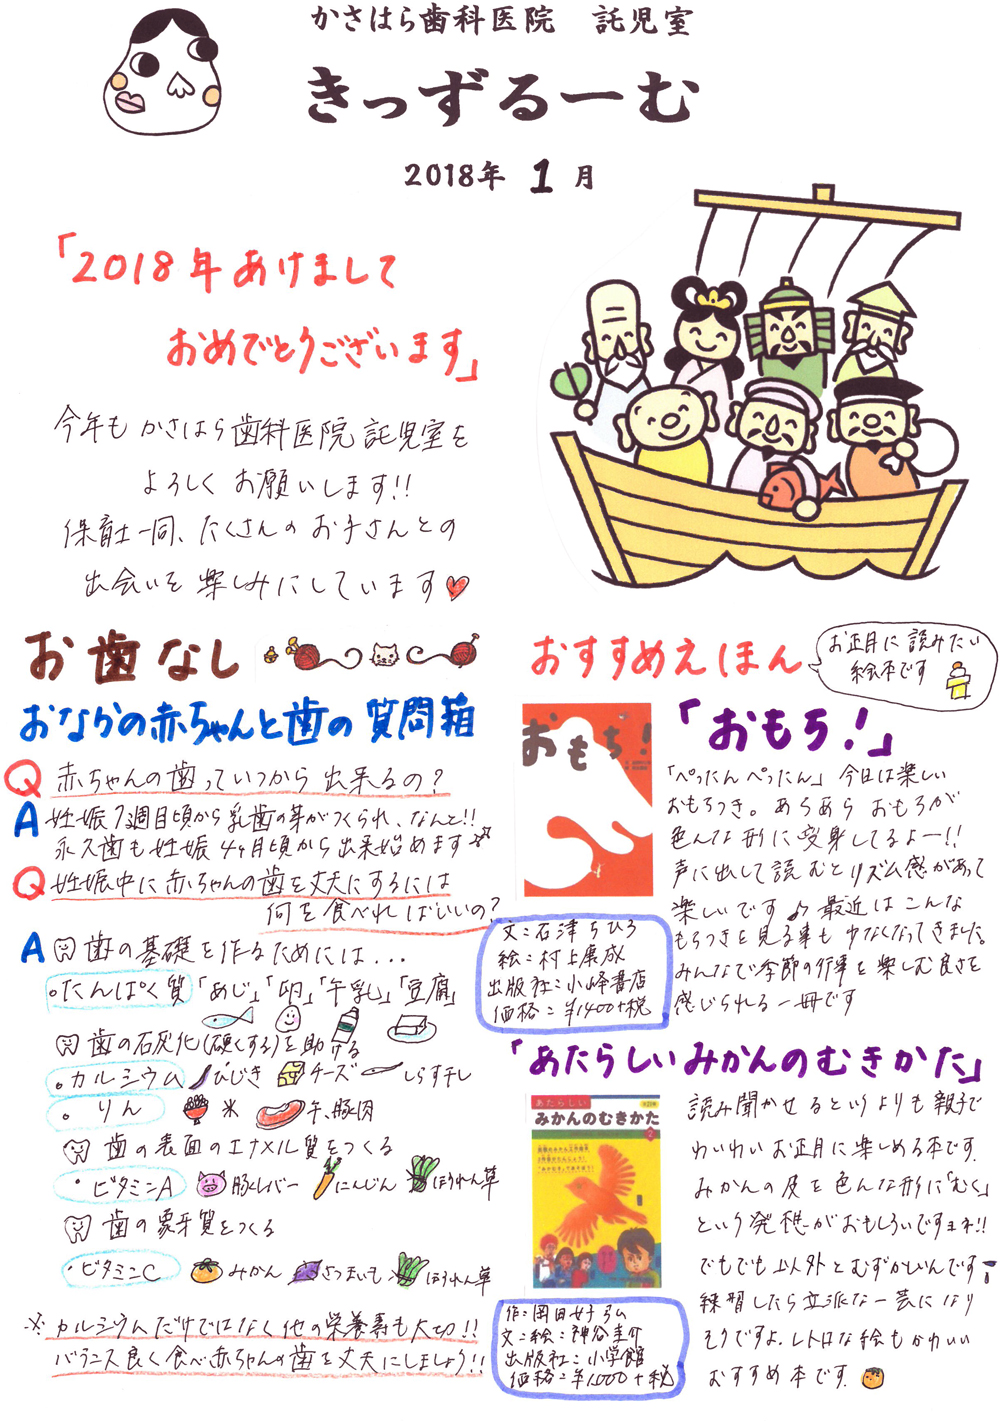 かさはら歯科医院　託児室
きっずるーむ
2018年 1 月
「2018年あけまして
おめでとうございます」
今年も かさはら歯科医院 託児室を
よろしく お願いします!!
保育士一同、たくさんの お子さんとの
出会いを 楽しみにしています
お歯なし
おなかの赤ちゃんと歯の質問箱
Q 赤ちゃんの歯っていつから 出来るの？
A 妊娠7週目頃から乳歯の芽がつくられ、なんと!!
永久歯も妊娠4ヶ月頃から出来始めます
Q 妊娠中に赤ちゃんの歯を丈夫にするには
何を食べればいいの？
A 歯の基礎を作るためには...
・たんぱく質「あじ」「卵」「牛乳」「豆腐」
歯の石灰化(硬くする)を助ける
。カルシウム ひじき チーズ しらす干し
。りん 米 牛、豚肉
歯の表面のエナメル質をつくる
・ビタミンA 豚レバー にんじん ほうれん草
歯の象牙質をつくる
・ビタミンC みかん さつまいも ほうれん草
※カルシウムだけではなく他の栄養素も大切!!
バランス良く食べ赤ちゃんの歯を丈夫にしましょう!!
おすすめえほん
お正月に読みたい
絵本です
おもち！
「おもち！」
「ぺったんぺったん」今日は楽しい
おもちつき。あらあら おもちが
色んな形に変身してるよー!!
声に出して読むとリズム感があって
楽しいです♪最近はこんな
もちつきを見る事も少なくなってきました。
みんなで季節の行事を楽しむ良さを
感じられる一冊です
文：石津ちひろ
絵：村上康成
出版社：小峰書店
価格：¥1400+税
「あたらしいみかんのむきかた」
あたらしい
みかんのむきかた
2
読み聞かせるというよりも親子で
わいわいお正月に楽しめる本です。
みかんの皮を色んな形に「むく」
という発想がおもしろいですョネ!!
でもでも以外とむずかしいんです
練習したら立派な一芸になり
そうですよ。レトロな絵もかわいい
おすすめ本です。
作：岡田好弘
文：絵：神谷圭介
出版社：小学館
価格：¥1,000+税